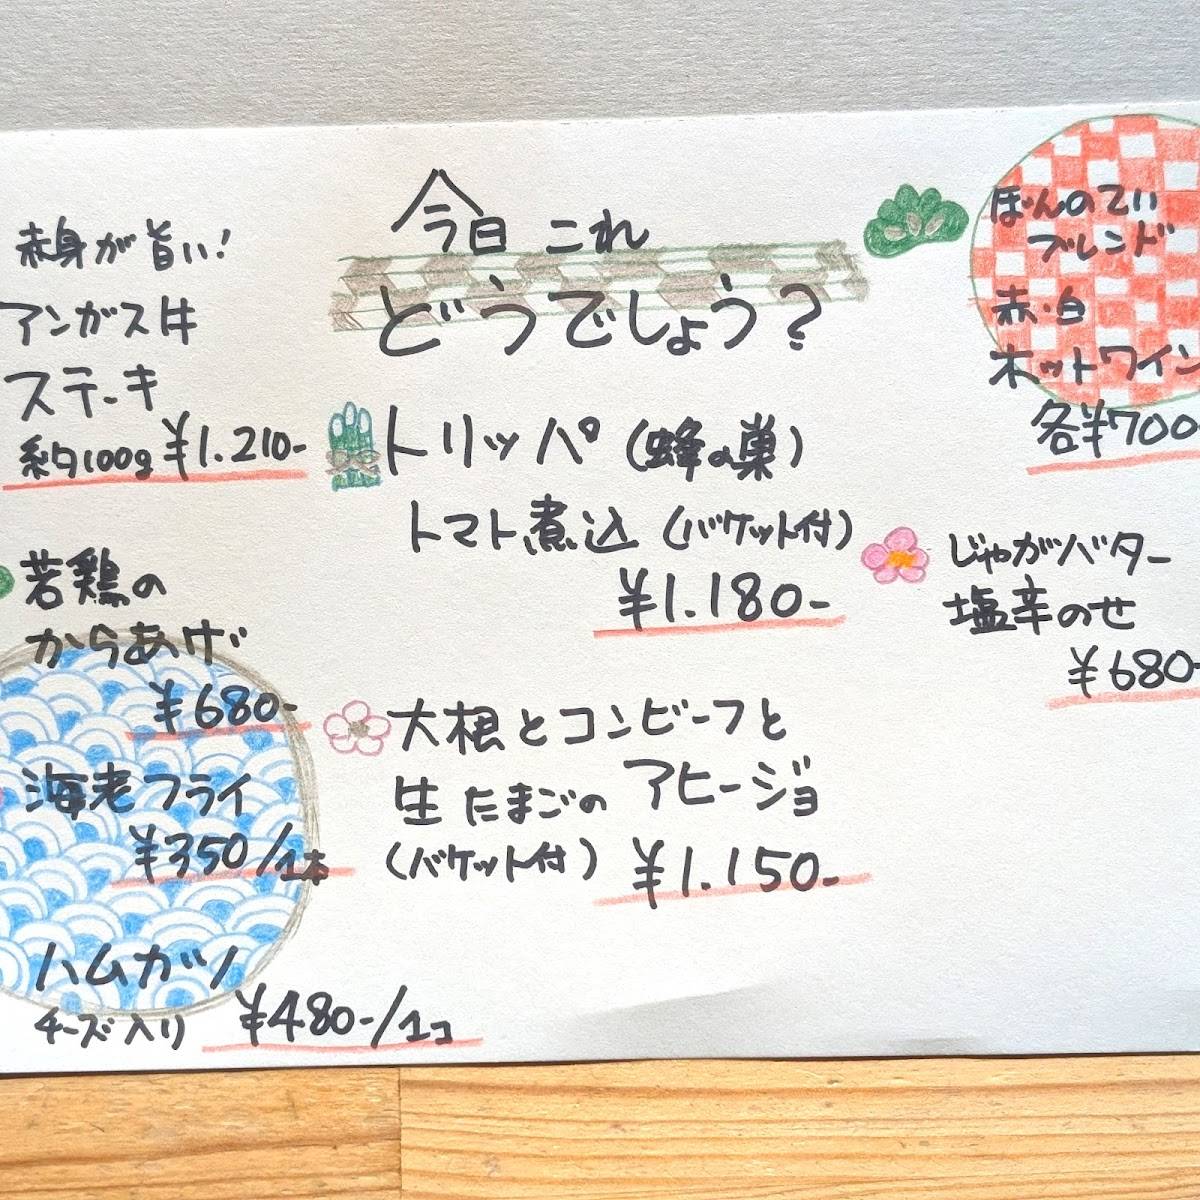 今日 これ
どうでしょう?
赤身が旨い!
アンガス牛
ステーキ
約100g ¥1.210-
若鶏の
からあげ
¥680-
海老フライ
¥350/1本
ハムカツ
チーズ入り ¥480-/1コ
トリッパ(蜂の巣)
トマト煮込(バケット付)
¥1.180-
大根とコンビーフと
生たまごのアヒージョ
(バケット付) ¥1.150-
ぼんのてい
ブレンド
赤・白
ホットワイン
各¥700-
じゃがバター
塩辛のせ
¥680-